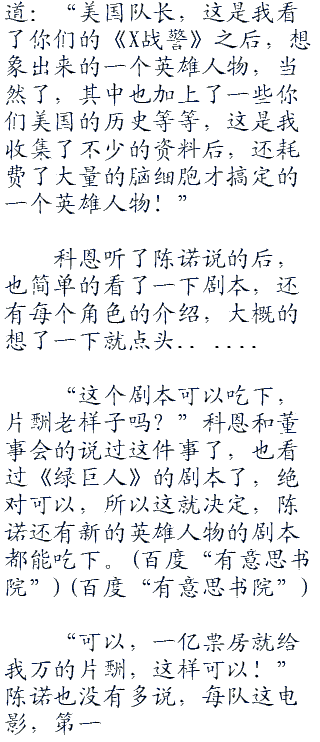 道：“美国队长，这是我看
了你们的《X战警》之后，想
象出来的一个英雄人物，当
然了，其中也加上了一些你
们美国的历史等等，这是我
收集了不少的资料后，还耗
费了大量的脑细胞才搞定的
一个英雄人物！”
科恩听了陈诺说的后，
也简单的看了一下剧本，还
有每个角色的介绍，大概的
想了一下就点头．．．．．．
“这个剧本可以吃下，
片酬老样子吗？”科恩和董
事会的说过这件事了，也看
过《绿巨人》的剧本了，绝
对可以，所以这就决定，陈
诺还有新的英雄人物的剧本
都能吃下。(百度“有意思书
院”)(百度“有意思书院”)
“可以，一亿票房就给
我万的片酬，这样可以！”
陈诺也没有多说，每队这电
影，第一